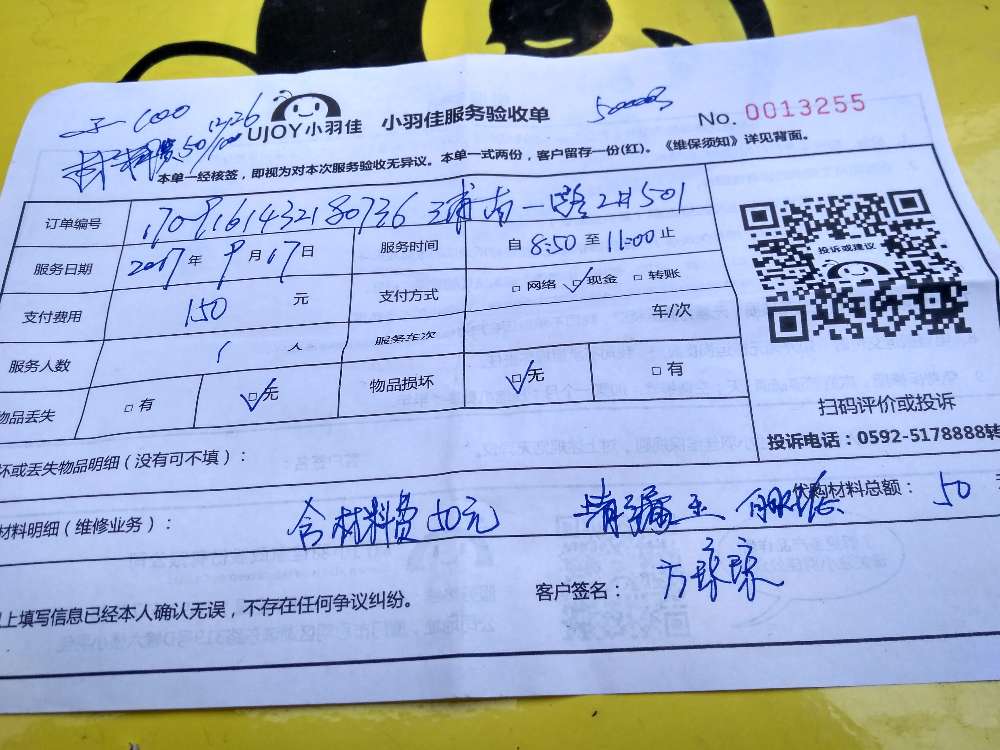 1226
UJOY小羽佳 小羽佳服务验收单 No. 0013255
材料费50/100
本单一经核签，即视为对本次服务验收无异议。本单一式两份，客户留存一份(红)。《维保须知》详见背面。
订单编号 1709161432180736 浦南一路2#501
服务日期 2017年9月17日 服务时间 自8:50至11:00止
投诉或建议
支付费用 150 元 支付方式 □网络 ☑现金 □转账
服务人数 1 人 服务车次 车/次
物品丢失 □有 ☑无 物品损坏 ☑无 □有
扫码评价或投诉
投诉电话：0592-5178888转
坏或丢失物品明细（没有可不填）：
材料明细（维修业务）： 含材料费50元 代购材料总额： 50
上填写信息已经本人确认无误，不存在任何争议纠纷。 客户签名： 方琼琼